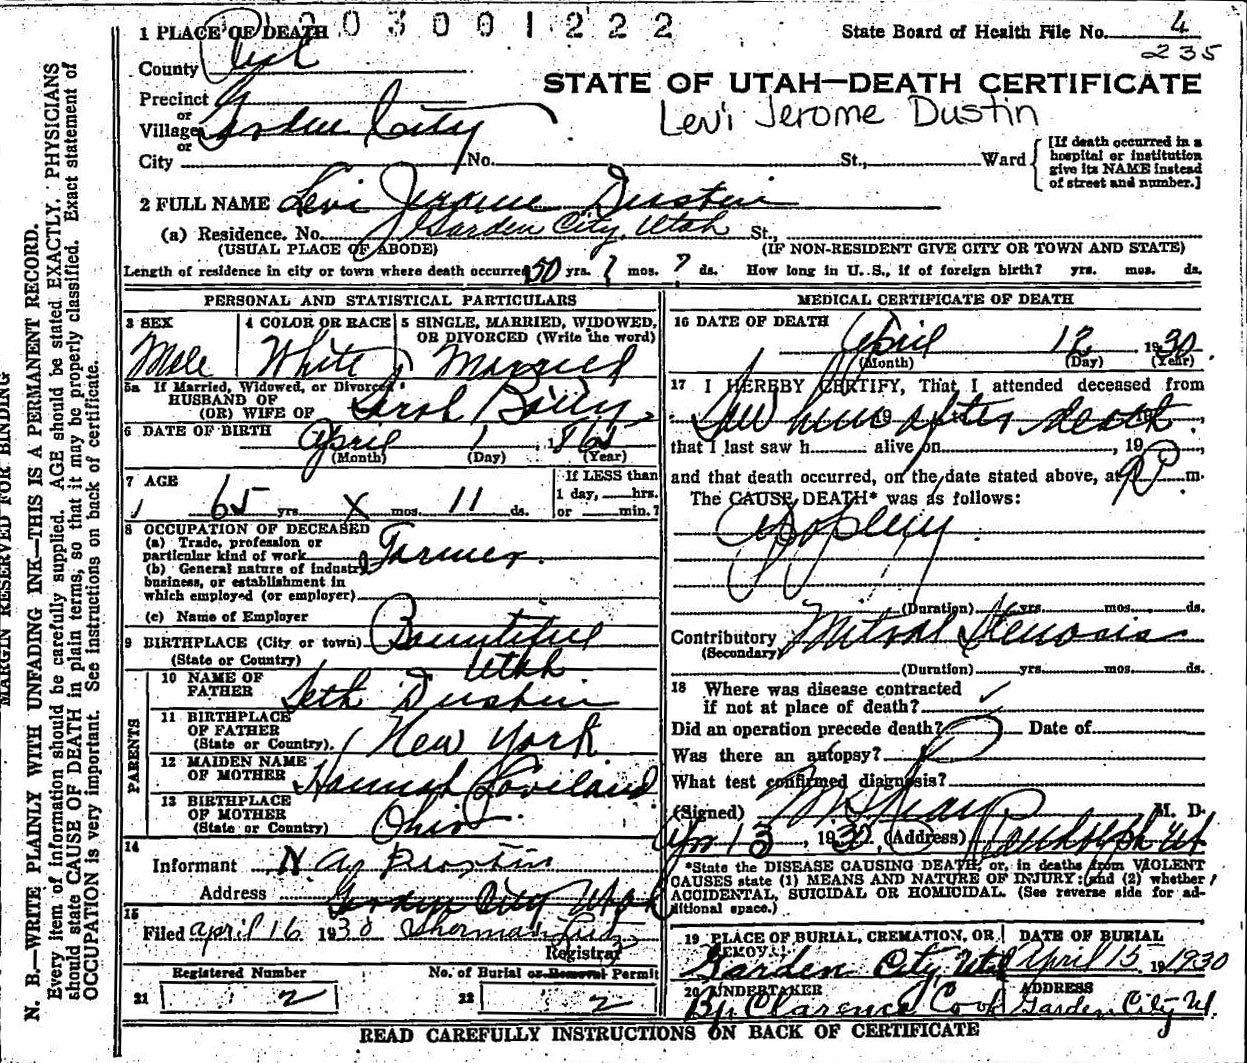 1 PLACE OF DEATH 003001222
State Board of Health File No. 4
235
County Rich
STATE OF UTAH—DEATH CERTIFICATE
Precinct
or
Village Garden City
or
Levi Jerome Dustin
City No. St., Ward
[If death occurred in a hospital or institution give its NAME instead of street and number.]
2 FULL NAME Levi Jerome Dustin
(a) Residence. No. Garden City, Utah St.,
(USUAL PLACE OF ABODE) (IF NON-RESIDENT GIVE CITY OR TOWN AND STATE)
Length of residence in city or town where death occurred 50 yrs. ? mos. ? ds. How long in U. S., if of foreign birth? yrs. mos. ds.
PERSONAL AND STATISTICAL PARTICULARS
3 SEX
Male
4 COLOR OR RACE
White
5 SINGLE, MARRIED, WIDOWED, OR DIVORCED (Write the word)
Married
5a If Married, Widowed, or Divorced
HUSBAND OF
(OR) WIFE OF Sarah
6 DATE OF BIRTH April 1
(Month) (Day) (Year)
7 AGE
65 yrs. x mos. 11 ds.
If LESS than
1 day, hrs.
or min.?
8 OCCUPATION OF DECEASED
(a) Trade, profession or
particular kind of work Farmer
(b) General nature of industry
business, or establishment in
which employed (or employer)
(c) Name of Employer
9 BIRTHPLACE (City or town) Bountiful
(State or Country) Utah
PARENTS
10 NAME OF
FATHER Seth Dustin
11 BIRTHPLACE
OF FATHER
(State or Country). New York
12 MAIDEN NAME
OF MOTHER Hannah Loveland
13 BIRTHPLACE
OF MOTHER
(State or Country) Ohio
14
Informant
Address Garden City Utah
15
Filed April 16 1930 Sherman
Registrar
Registered Number No. of Burial or Removal Permit
21 2 22 2
MEDICAL CERTIFICATE OF DEATH
16 DATE OF DEATH
April 12 1930
(Month) (Day) (Year)
17 I HEREBY CERTIFY, That I attended deceased from
Saw him after death.
that I last saw h alive on , 19
and that death occurred, on the date stated above, at m.
The CAUSE DEATH* was as follows:
Apoplexy
(Duration) yrs. mos. ds.
Contributory Mitral Stenosis
(Secondary)
(Duration) yrs. mos. ds.
18 Where was disease contracted
if not at place of death?
Did an operation precede death? Date of
Was there an autopsy?
What test confirmed diagnosis?
(Signed) M. D.
Apr 13, 1930, (Address) Randolph Ut
*State the DISEASE CAUSING DEATH, or, in deaths from VIOLENT
CAUSES state (1) MEANS AND NATURE OF INJURY; and (2) whether
ACCIDENTAL, SUICIDAL OR HOMICIDAL. (See reverse side for ad-
ditional space.)
19 PLACE OF BURIAL, CREMATION, OR REMOVAL
Garden City Utah
DATE OF BURIAL
April 15 19 1930
20 UNDERTAKER
By Clarence Cook
ADDRESS
Garden City Ut.
READ CAREFULLY INSTRUCTIONS ON BACK OF CERTIFICATE
MARGIN RESERVED FOR BINDING
N. B.—WRITE PLAINLY WITH UNFADING INK—THIS IS A PERMANENT RECORD.
Every item of information should be carefully supplied. AGE should be stated EXACTLY. PHYSICIANS
should state CAUSE OF DEATH in plain terms, so that it may be properly classified. Exact statement of
OCCUPATION is very important. See instructions on back of certificate.